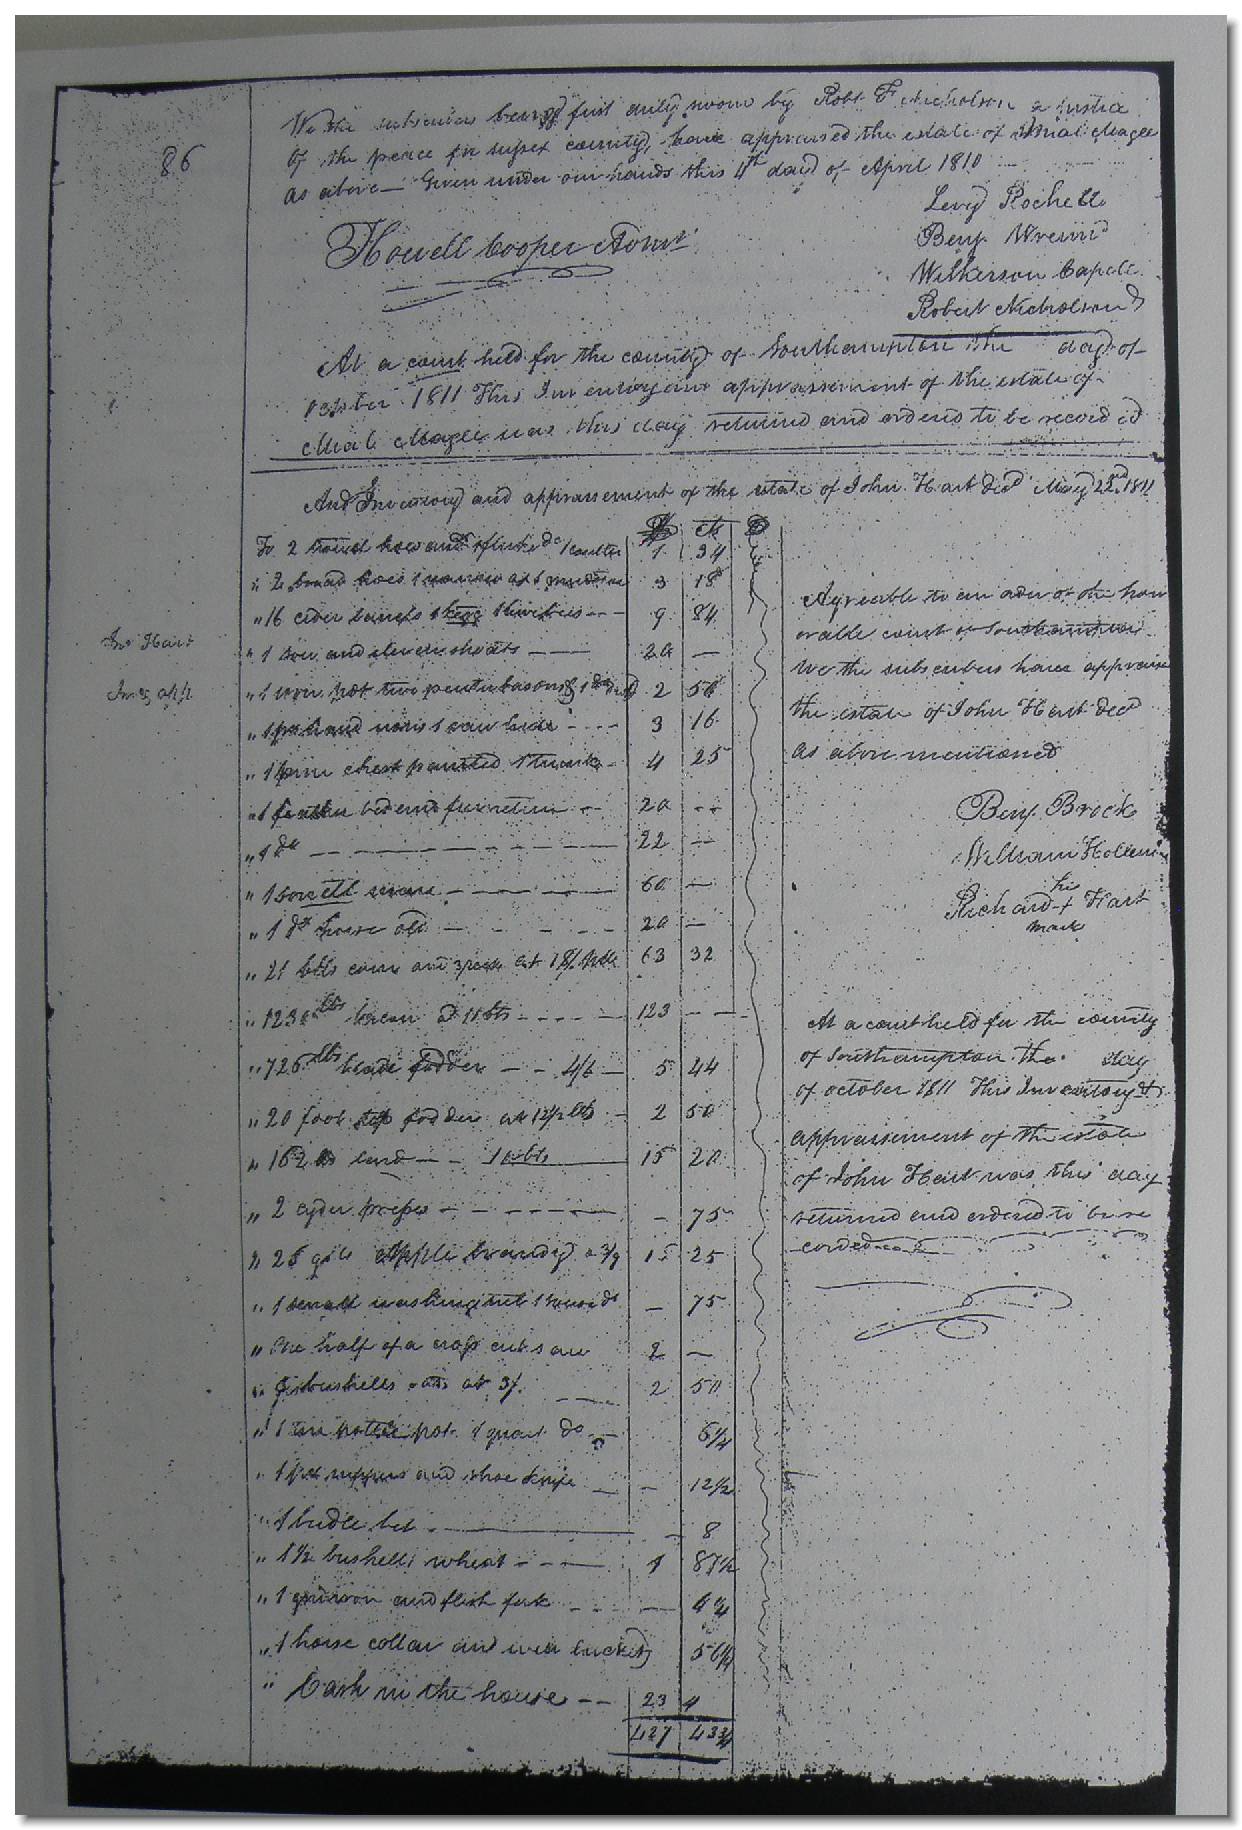 86
We the subscribers being first duly sworn by Robt F Nicholson a Justice
of the peace for sussex county, have appraised the estate of Micl Magee
as above— Given under our hands this 4th day of April 1810
Levy Rochelle
Benj. Wrenn
Wilkerson Capell
Robert Nicholson
Howell Cooper Admr
At a court held for the county of Southampton the day of
october 1811 This Inventory and appraisement of the estate of
Magee was this day returned and ordered to be recorded
And Inventory and appraisement of the estate of John Hart decd May 22nd 1811
Jno Hart
Inv & app
$ cts
To 2 hoes and do 1 coulter 1 34
" 2 broad hoes 1 narrow ax 3 18
" 16 cider barrels 9 84
" 1 sow and eleven shoats —— 20 —
" 1 iron pot two pewter basons & 1 2 50
" 1 and 1 raw hide - - - 3 16
" 1 pine chest painted 1 trunk - 4 25
" 1 feather bed and furniture -- 20 --
" 1 do — — — — 22 —
" 1 sorrell — — — — 60 —
" 1 do horse old — - - - 20 —
" 21 bbls corn and at 18/ 63 32
" 1230 lbs bacon a 10 cts - - - - 123 - —
" 725 lbs blade fodder — - 4/6 — 5 44
" 20 foot fodder at 12½ cts - 2 50
" 152 lbs lard — - 10 cts 15 20
" 2 cyder — - - - - — - 75
" 25 gals apple brandy a 3/9 15 25
" 1 small washing tub 1 do — 75
" One half of a cross cut saw 2 —
" bushells oats at 3/. 2 50
" 1 tin pot 1 quart do - 6¼
" 1 nippers and shoe knife — - 12½
" 1 bridle bit — - 8
" 1½ bushells wheat - - —— 1 87½
" 1 gridiron and flesh fork - - —
" 1 horse collar and bucket 56¼
" Cash in the house -- 23 4
427 43¾
Agreeable to an order of the hon
orable court of Southampton
We the subscribers have appraise
the estate of John Hart decd
as above mentioned
Benj. Brock
William
his
Richard + Hart
mark
At a court held for the county
of Southampton the day
of october 1811 This Inventory &
appraisement of the estate
of John Hart was this day
returned and ordered to be re
corded